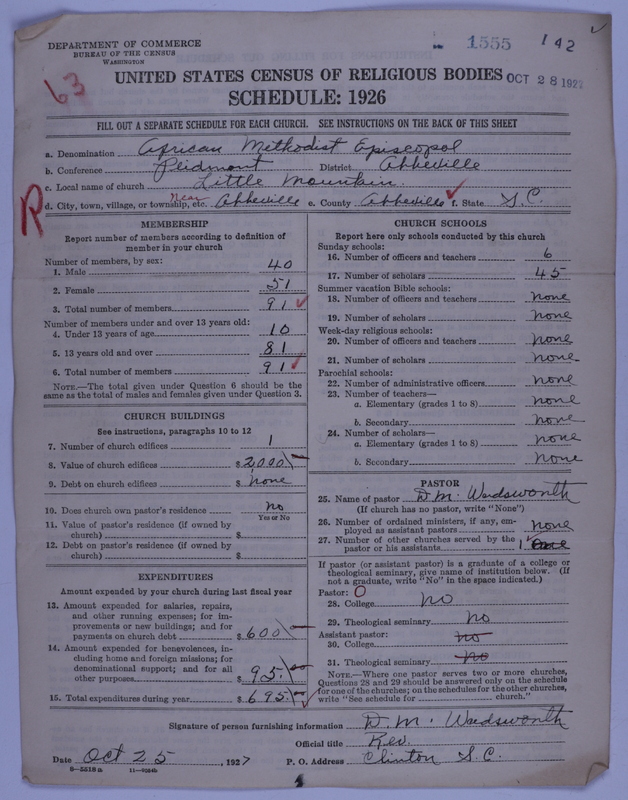 DEPARTMENT OF COMMERCE
BUREAU OF THE CENSUS
WASHINGTON
1555 142
63
UNITED STATES CENSUS OF RELIGIOUS BODIES OCT 28 192
SCHEDULE: 1926
FILL OUT A SEPARATE SCHEDULE FOR EACH CHURCH. SEE INSTRUCTIONS ON THE BACK OF THIS SHEET
a. Denomination African Methodist Episcopal
b. Conference Peidmont District Abbeville
c. Local name of church Little Mountain.
R d. City, town, village, or township, etc. Near Abbeville e. County Abbeville f. State S.C.
MEMBERSHIP
Report number of members according to definition of
member in your church
Number of members, by sex:
1. Male 40
2. Female 51
3. Total number of members 91
Number of members under and over 13 years old:
4. Under 13 years of age 10
5. 13 years old and over 81
6. Total number of members 91
NOTE.—The total given under Question 6 should be the
same as the total of males and females given under Question 3.
CHURCH BUILDINGS
See instructions, paragraphs 10 to 12
7. Number of church edifices 1
8. Value of church edifices $ 2,000
9. Debt on church edifices $ none
10. Does church own pastor's residence no
Yes or No
11. Value of pastor's residence (if owned by
church) $
12. Debt on pastor's residence (if owned by
church) $
EXPENDITURES
Amount expended by your church during last fiscal year
13. Amount expended for salaries, repairs,
and other running expenses; for im-
provements or new buildings; and for
payments on church debt $ 600
14. Amount expended for benevolences, in-
cluding home and foreign missions; for
denominational support; and for all
other purposes $ 95.
15. Total expenditures during year $ 695
CHURCH SCHOOLS
Report here only schools conducted by this church
Sunday schools:
16. Number of officers and teachers 6
17. Number of scholars 45
Summer vacation Bible schools:
18. Number of officers and teachers none
19. Number of scholars none
Week-day religious schools:
20. Number of officers and teachers none
21. Number of scholars none
Parochial schools:
22. Number of administrative officers none
23. Number of teachers—
a. Elementary (grades 1 to 8) none
b. Secondary none
24. Number of scholars—
a. Elementary (grades 1 to 8) none
b. Secondary none
PASTOR
25. Name of pastor D. M. Wardsworth
(If church has no pastor, write "None")
26. Number of ordained ministers, if any, em-
ployed as assistant pastors none
27. Number of other churches served by the
pastor or his assistants 1
If pastor (or assistant pastor) is a graduate of a college or
theological seminary, give name of institution below. (If
not a graduate, write "No" in the space indicated.)
Pastor: O
28. College no
29. Theological seminary no
Assistant pastor:
30. College no
31. Theological seminary no
NOTE.—Where one pastor serves two or more churches,
Questions 28 and 29 should be answered only on the schedule
for one of the churches; on the schedules for the other churches,
write "See schedule for church."
Signature of person furnishing information D. M. Wardsworth
Official title Rev.
Date Oct 25, 1927 P. O. Address Clinton S.C.
8—5518a 11—9264b